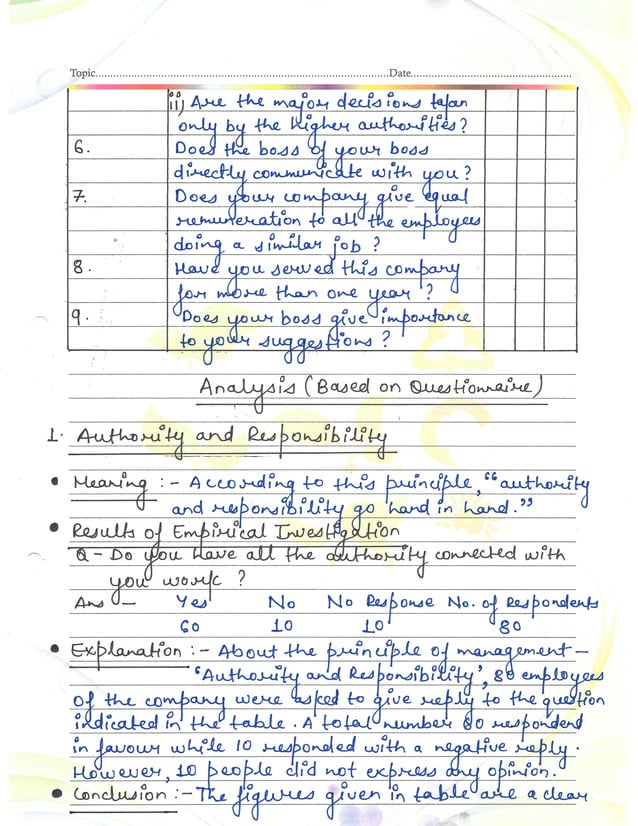 Topic Date
ii) Are the major decisions takan
only by the higher authorities?
6. Does the boss of your boss
directly communicate with you?
7. Does your company give equal
remuneration to all the employees
doing a similar job?
8. Have you served this company
for more than one year?
9. Does your boss give importance
to your suggestions?
Analysis (Based on Questionnaire)
1. Authority and Responsibility
• Meaning :- According to this principle, "authority
and responsibility go hand in hand."
• Results of Empirical Investigation
Q - Do you have all the authority connected with
you work?
Ans - Yes No No Response No. of Respondents
60 10 10 80
• Explanation :- About the principle of management -
'Authority and Responsibility', 80 employees
of the company were asked to give reply to the question
indicated in the table. A total number 60 respondend
in favour while 10 responded with a negative reply.
However, 10 people did not express any opinion.
• Conclusion :- The figures given in table are a clear